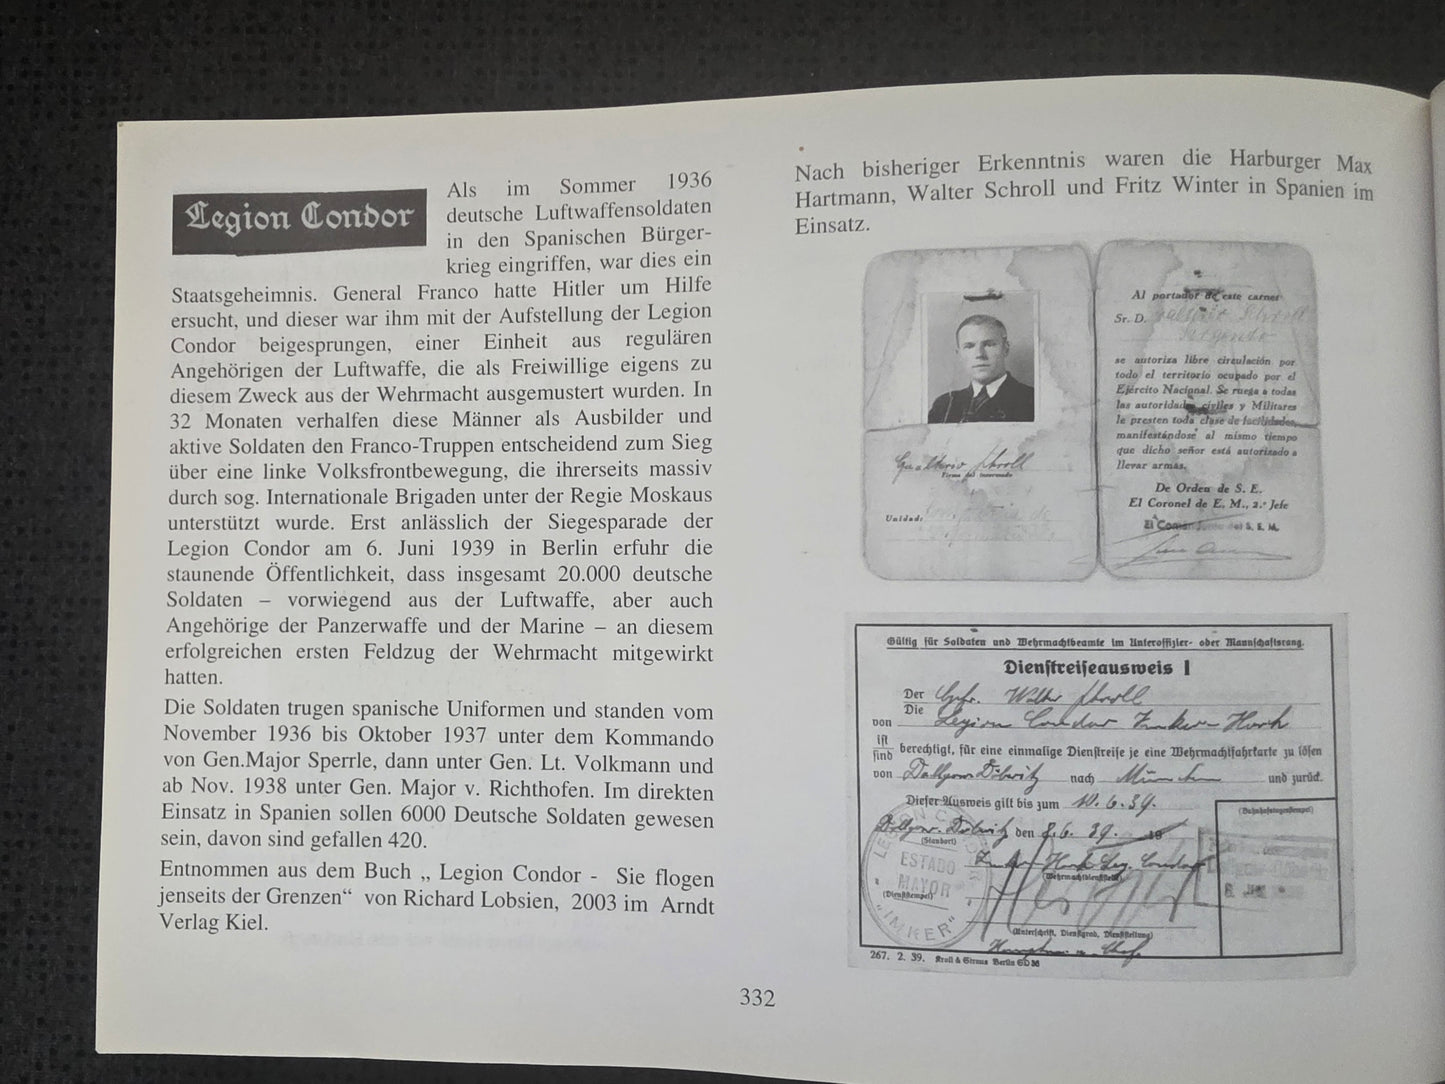 Legion Condor
Als im Sommer 1936
deutsche Luftwaffensoldaten
in den Spanischen Bürger-
krieg eingriffen, war dies ein
Staatsgeheimnis. General Franco hatte Hitler um Hilfe
ersucht, und dieser war ihm mit der Aufstellung der Legion
Condor beigesprungen, einer Einheit aus regulären
Angehörigen der Luftwaffe, die als Freiwillige eigens zu
diesem Zweck aus der Wehrmacht ausgemustert wurden. In
32 Monaten verhalfen diese Männer als Ausbilder und
aktive Soldaten den Franco-Truppen entscheidend zum Sieg
über eine linke Volksfrontbewegung, die ihrerseits massiv
durch sog. Internationale Brigaden unter der Regie Moskaus
unterstützt wurde. Erst anlässlich der Siegesparade der
Legion Condor am 6. Juni 1939 in Berlin erfuhr die
staunende Öffentlichkeit, dass insgesamt 20.000 deutsche
Soldaten – vorwiegend aus der Luftwaffe, aber auch
Angehörige der Panzerwaffe und der Marine – an diesem
erfolgreichen ersten Feldzug der Wehrmacht mitgewirkt
hatten.
Die Soldaten trugen spanische Uniformen und standen vom
November 1936 bis Oktober 1937 unter dem Kommando
von Gen.Major Sperrle, dann unter Gen. Lt. Volkmann und
ab Nov. 1938 unter Gen. Major v. Richthofen. Im direkten
Einsatz in Spanien sollen 6000 Deutsche Soldaten gewesen
sein, davon sind gefallen 420.
Entnommen aus dem Buch „ Legion Condor - Sie flogen
jenseits der Grenzen“ von Richard Lobsien, 2003 im Arndt
Verlag Kiel.
Nach bisheriger Erkenntnis waren die Harburger Max
Hartmann, Walter Schroll und Fritz Winter in Spanien im
Einsatz.
Gualterio Schroll
Firma del interesado
Unidad:
Al portador de este carnet
Sr. D. Schroll
Sargento
se autoriza libre circulación por
todo el territorio ocupado por el
Ejército Nacional. Se ruega a todas
las autoridades civiles y Militares
le presten toda clase de facilidades,
manifestándose al mismo tiempo
que dicho señor está autorizado a
llevar armas.
De Orden de S. E.
El Coronel de E. M., 2.º Jefe
S. E. M.
Gültig für Soldaten und Wehrmachtbeamte im Unteroffizier- oder Mannschaftsrang.
Dienstreiseausweis I
Der Gefr. Walter Schroll
Die
von Legion Condor Imker-Horch
ist
sind berechtigt, für eine einmalige Dienstreise je eine Wehrmachtfahrkarte zu lösen
von Dallgow-Döberitz nach München und zurück.
Dieser Ausweis gilt bis zum 10.6.39.
Dallgow-Döberitz den 8.6.39. 19
(Standort)
(Bahnhofstagesstempel)
Imker-Horch Leg. Condor
(Wehrmachtdienststelle)
ESTADO
MAYOR
"IMKER"
(Dienststempel)
(Unterschrift, Dienstgrad, Dienststellung)
267. 2. 39. Kroll & Straus Berlin SO 36
332